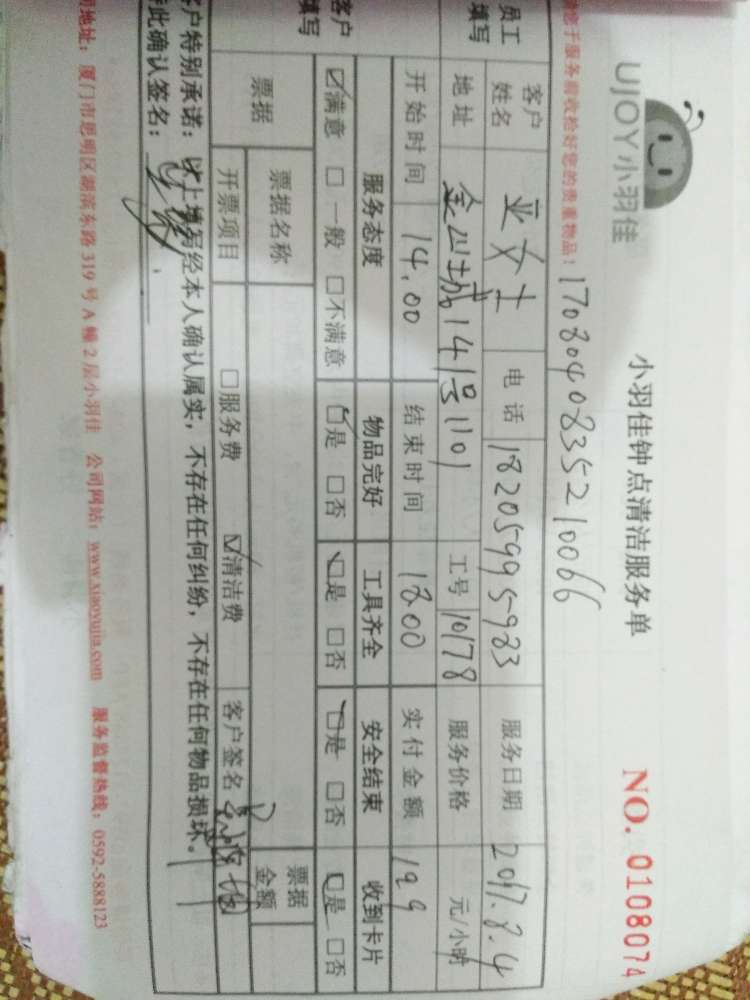 UJOY小羽佳
小羽佳钟点清洁服务单
NO. 0108074
服务前收检好您的贵重物品!
1708040835210066
员工填写
客户姓名 女士 电话 18205995983 服务日期 2017.8.4
地址 金山城141号1101 工号 10178 服务价格 元/小时
开始时间 14.00 结束时间 18.00 实付金额 199
客户填写
服务态度 物品完好 工具齐全 安全结束 收到卡片
☑满意 □一般 □不满意 ☑是 □否 ☑是 □否 ☑是 □否 ☑是 □否
票据 票据名称 票据金额
开票项目 □服务费 ☑清洁费 客户签名
客户特别承诺:以上填写经本人确认属实,不存在任何纠纷,不存在任何物品损坏。
此确认签名:
地址:厦门市思明区湖滨东路319号A幢2层小羽佳 公司网站:www.xiaoyujia.com 服务监督热线:0592-5888123